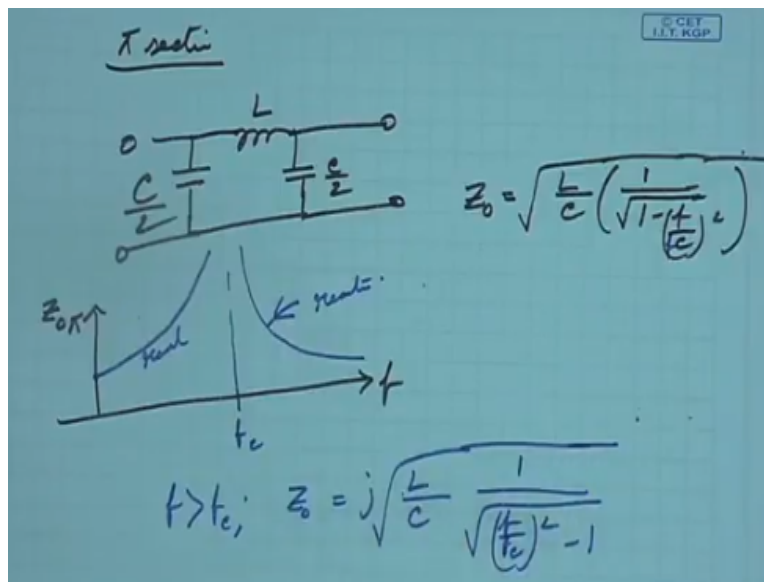 © CET
I.I.T. KGP
π section
L
C/2
C/2
Z₀ = √(L/C (1/√(1-(f/fc)²)))
Z₀π
real
f
fc
f > fc; Z₀ = j√(L/C 1/√((f/fc)² - 1))